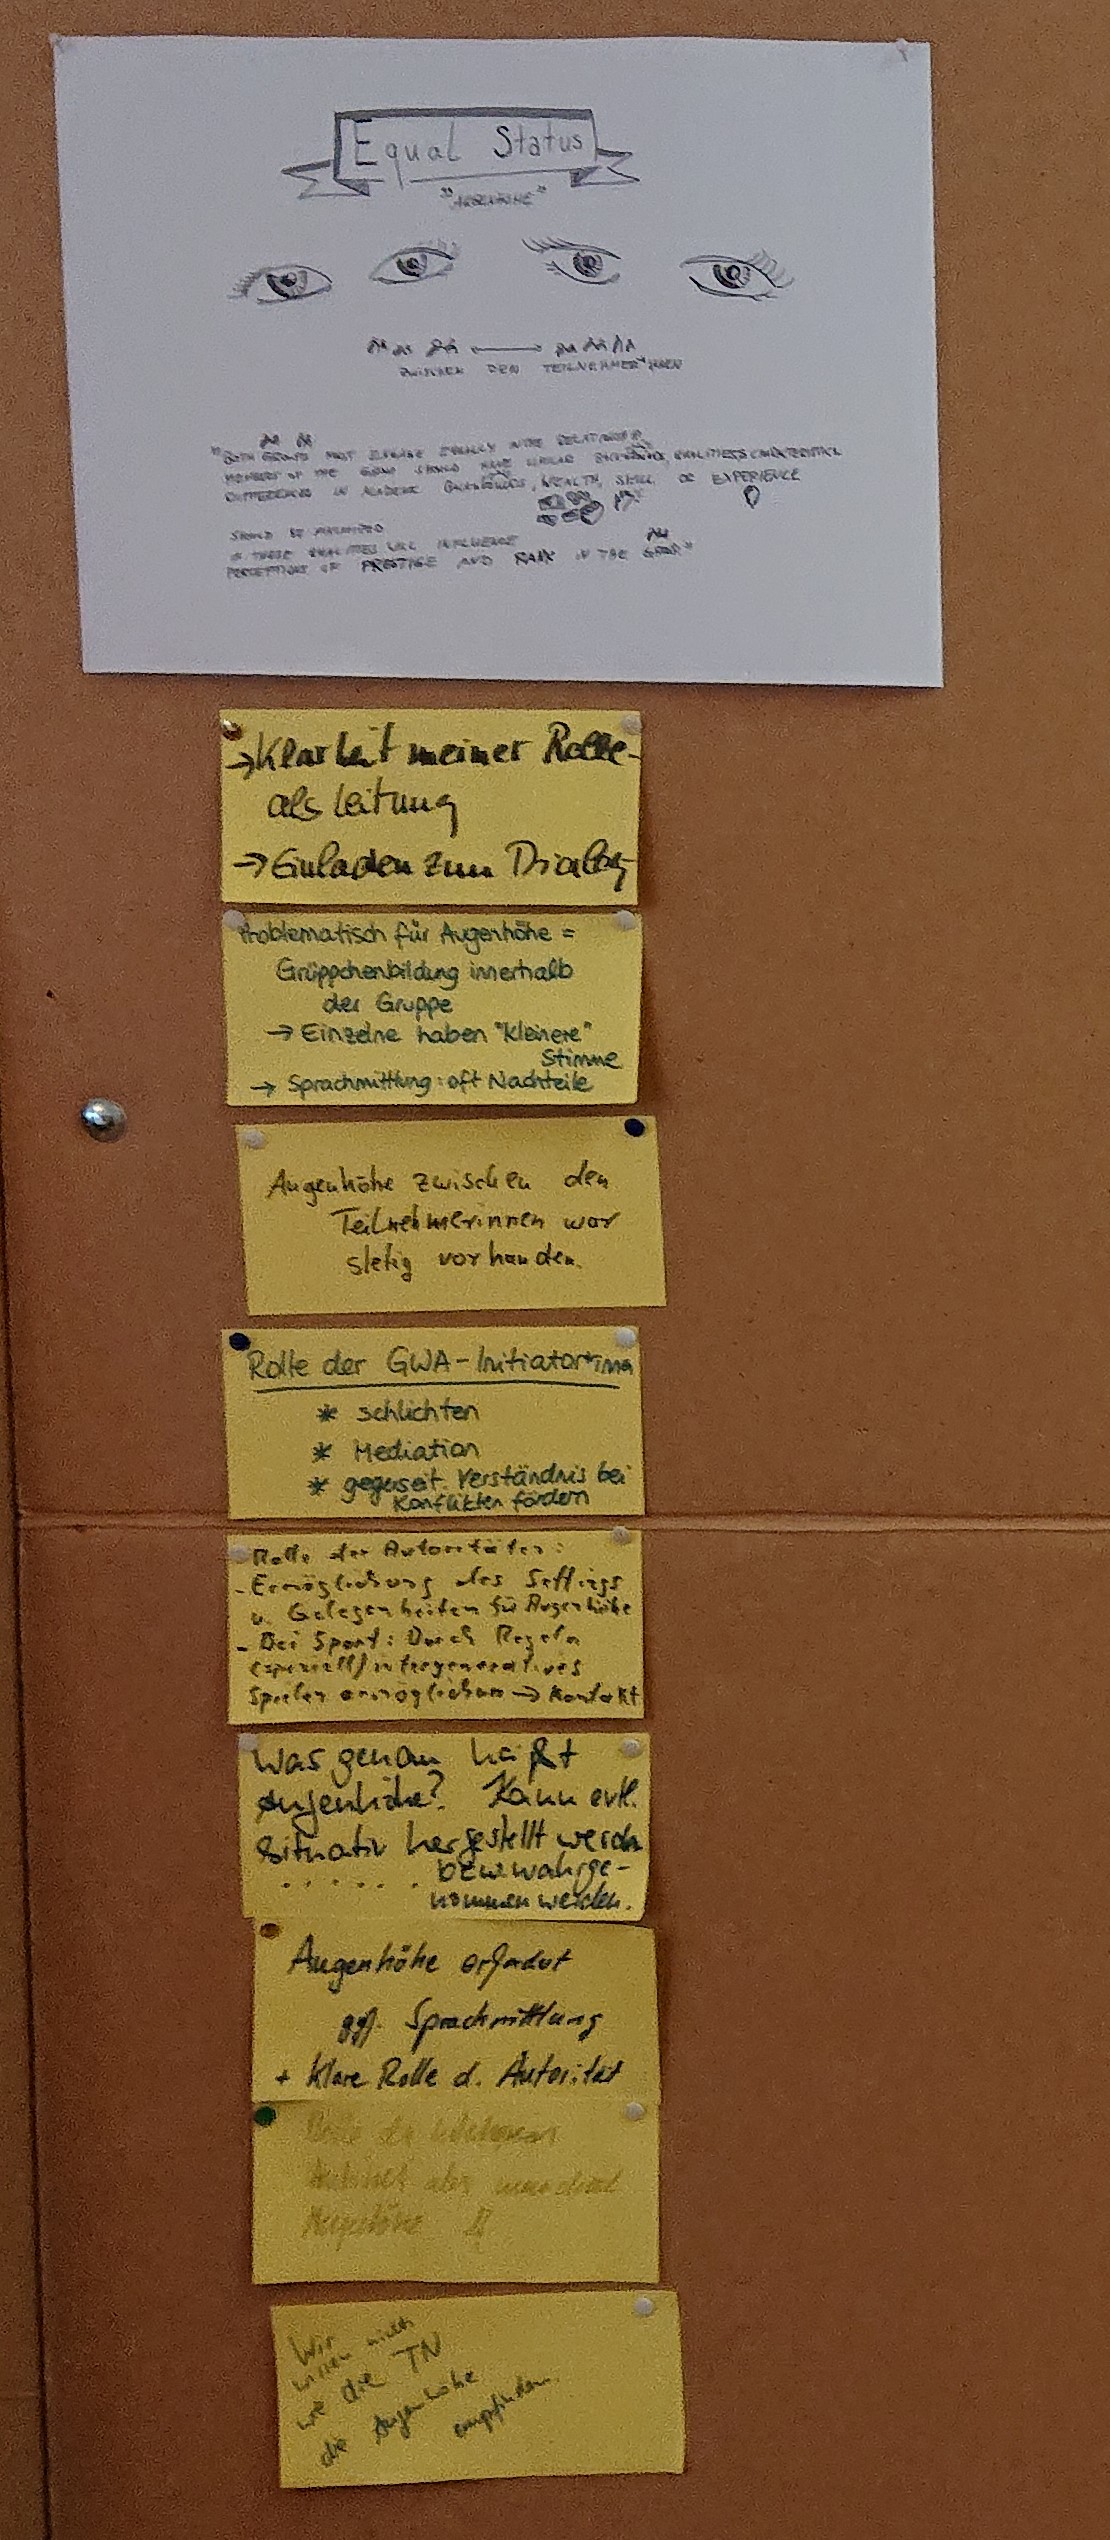 Equal Status
"AUGENHÖHE"
ZWISCHEN DEN TEILNEHMER*INNEN
"BOTH GROUPS MUST ENGAGE EQUALLY IN THE RELATIONSHIP,
MEMBERS OF THE GROUP SHOULD HAVE SIMILAR BACKGROUNDS, QUALITIES & CHARACTERISTICS
DIFFERENCES IN ACADEMIC BACKGROUNDS, WEALTH, SKILL OR EXPERIENCE
SHOULD BE MINIMIZED
IF THESE QUALITIES WILL INFLUENCE
PERCEPTIONS OF PRESTIGE AND RANK IN THE GROUP."
→ Klarheit meiner Rolle
als Leitung
→ Einladen zum Dialog
Problematisch für Augenhöhe =
Grüppchenbildung innerhalb
der Gruppe
→ Einzelne haben "kleinere"
Stimme
→ Sprachmittlung: oft Nachteile
Augenhöhe zwischen den
Teilnehmerinnen war
stetig vorhanden.
Rolle der GWA-Initiator*innen
* schlichten
* Mediation
* gegenseit. Verständnis bei
Konflikten fördern
Rolle der Autoritäten:
- Ermöglichung des Settings
u. Gelegenheiten für Augenhöhe
- Bei Sport: Durch Regeln
(speziell) intergeneratives
Spielen ermöglichen → Kontakt
Was genau heißt
Augenhöhe? Kann evtl.
situativ hergestellt werden
...... bzw wahrge-
nommen werden.
Augenhöhe erfordert
ggf. Sprachmittlung
+ klare Rolle d. Autorität
Rolle der
aber
Augenhöhe
Wir
wissen nicht
wie die TN
die Augenhöhe
empfinden.